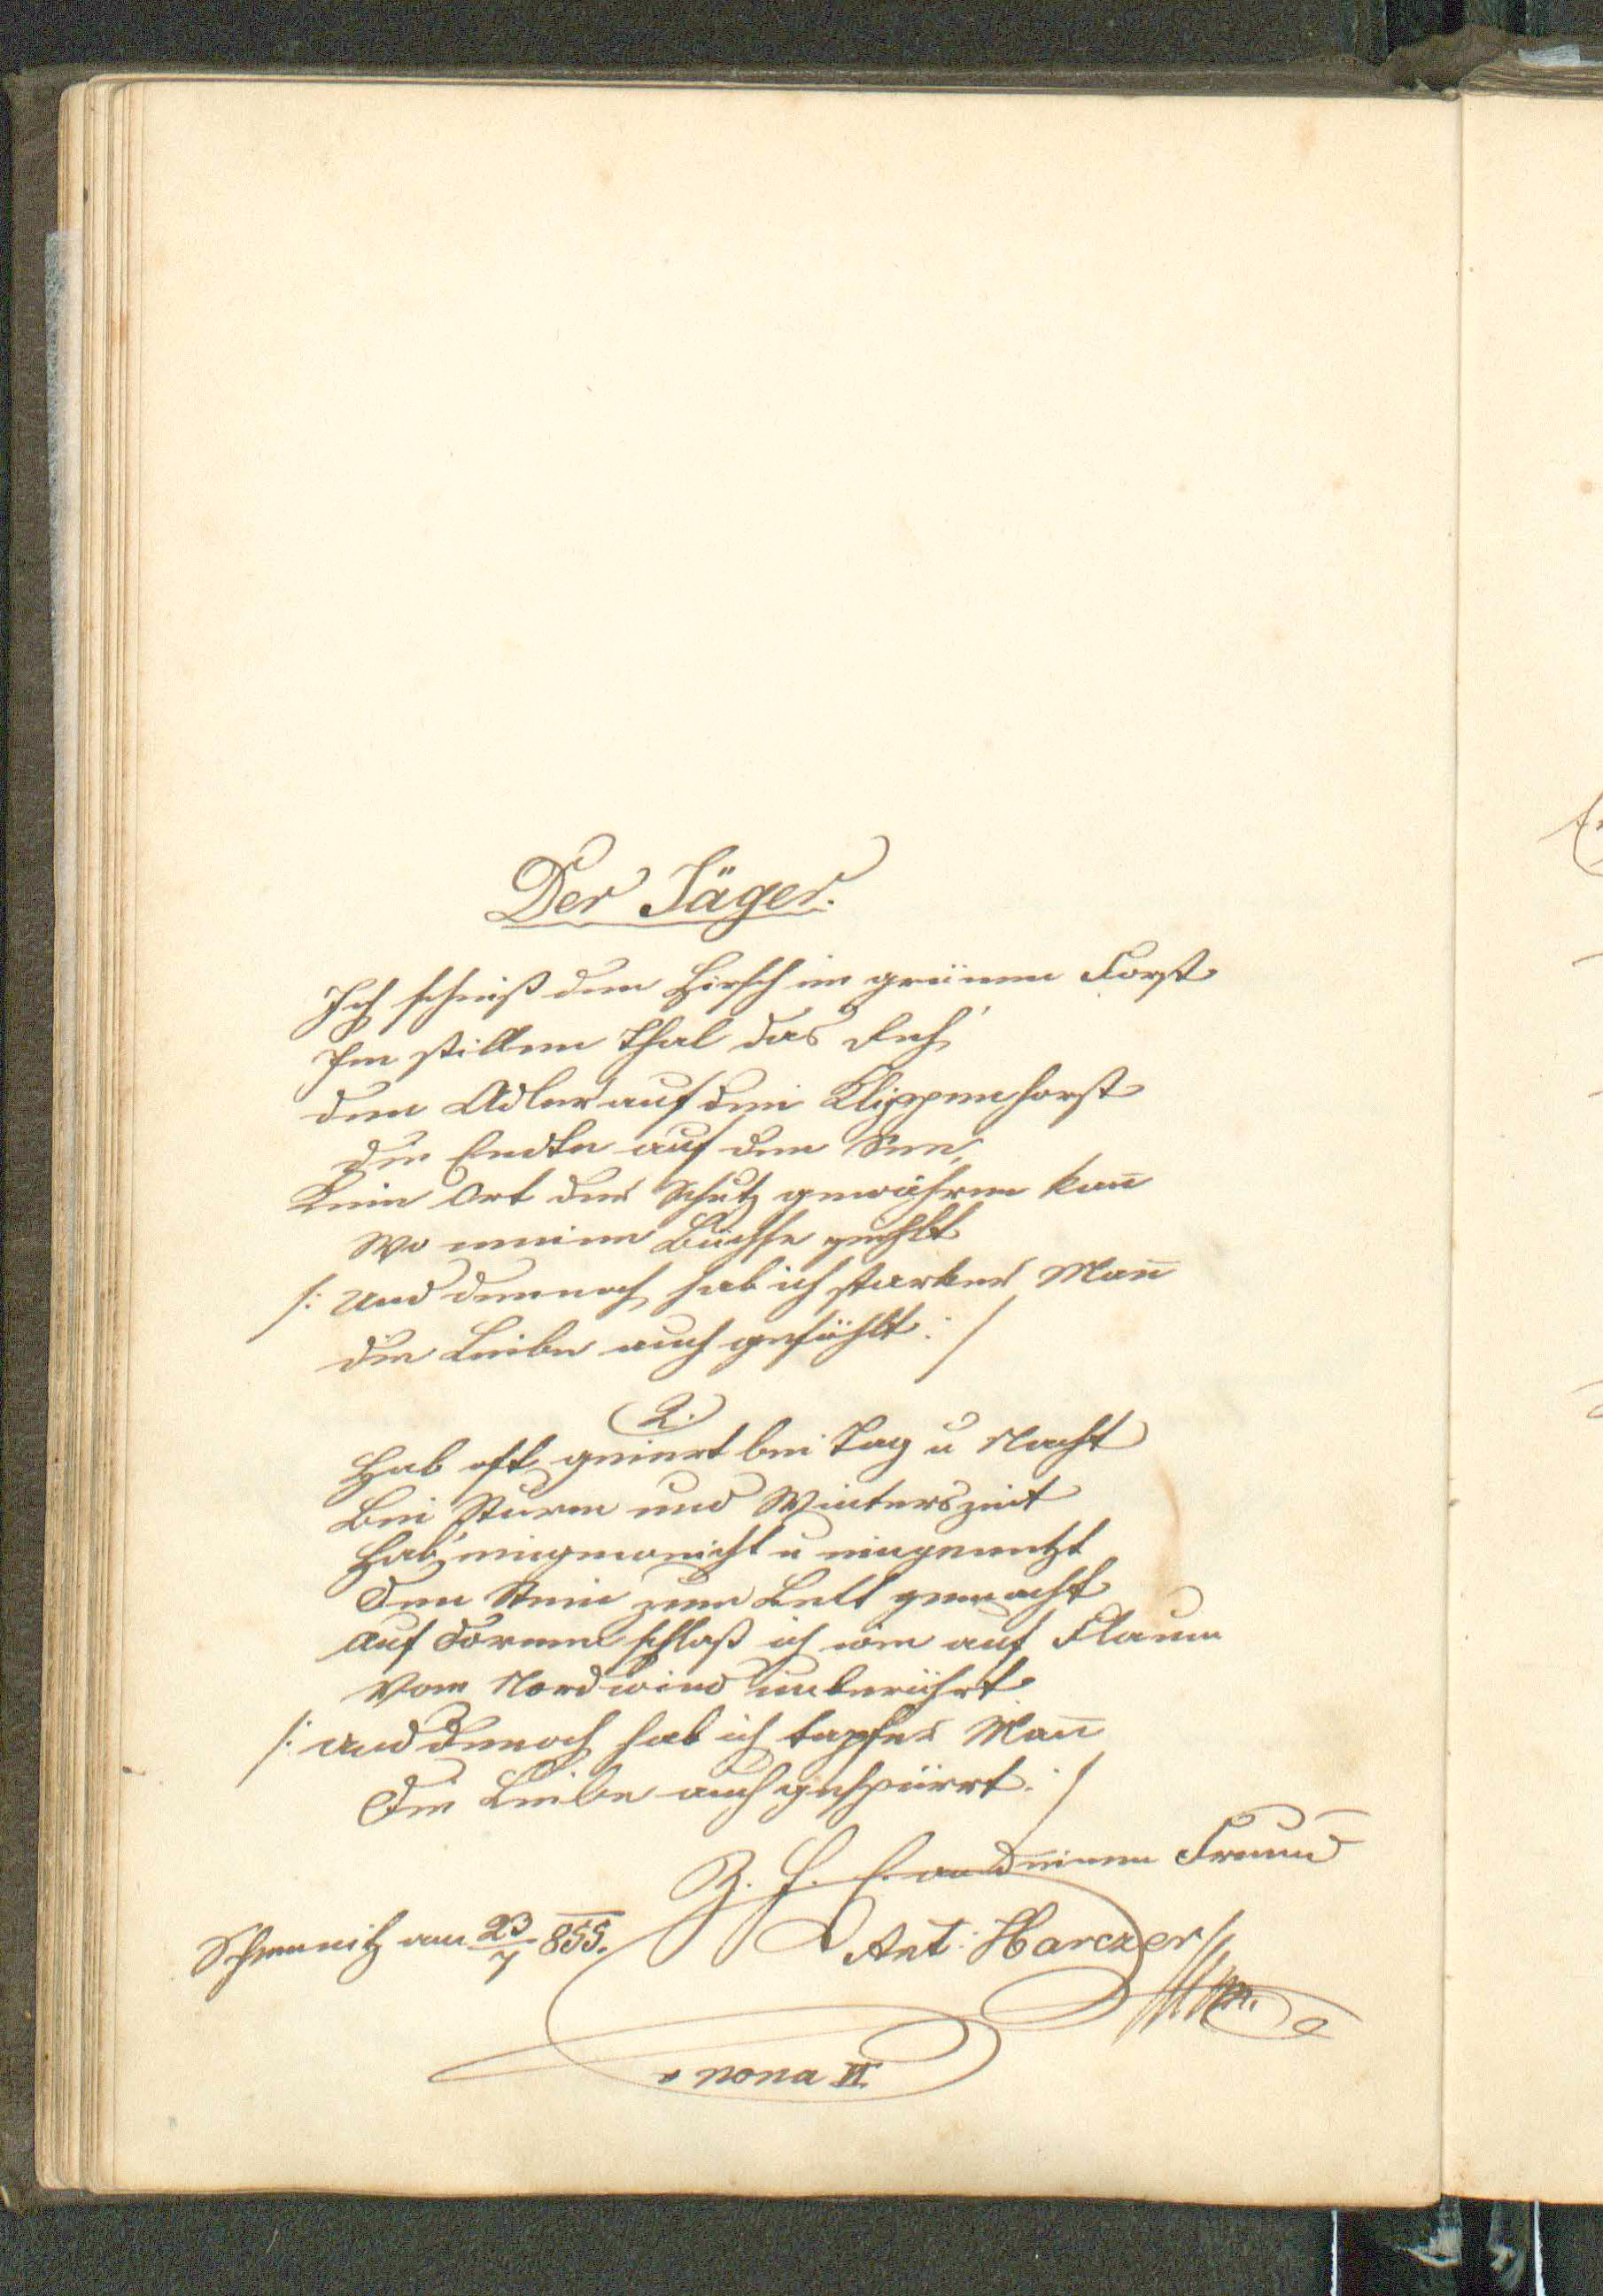 Der Jäger.
Ich schieß den Hirsch im grünen Forst
Im stillen Thal das Reh,
den Adler auf dem Klippenhorst
die Endte auf dem See,
Kein Ort der Schutz gewähren kan̄
Wo meine Büchse zielt
/: Und dennoch hab ich starker Man̄
die Liebe auch gefühlt :/
2.
Hab oft geirrt bei Tag u Nacht
Bei Sturm und Winterszeit
Hab, eingeweicht u eingenetzt
Den Stein zum Bett gemacht
Auf Dornen schlaf ich wie auf Flaum
Vom Nordwind unberührt
/: und dennoch hab ich tapfer Man̄
Die Liebe auch gespürrt. :/
Z. F. E. an deinen Freund
Schemnitz am 23/7 855.
Ant: Harczer
nona II.